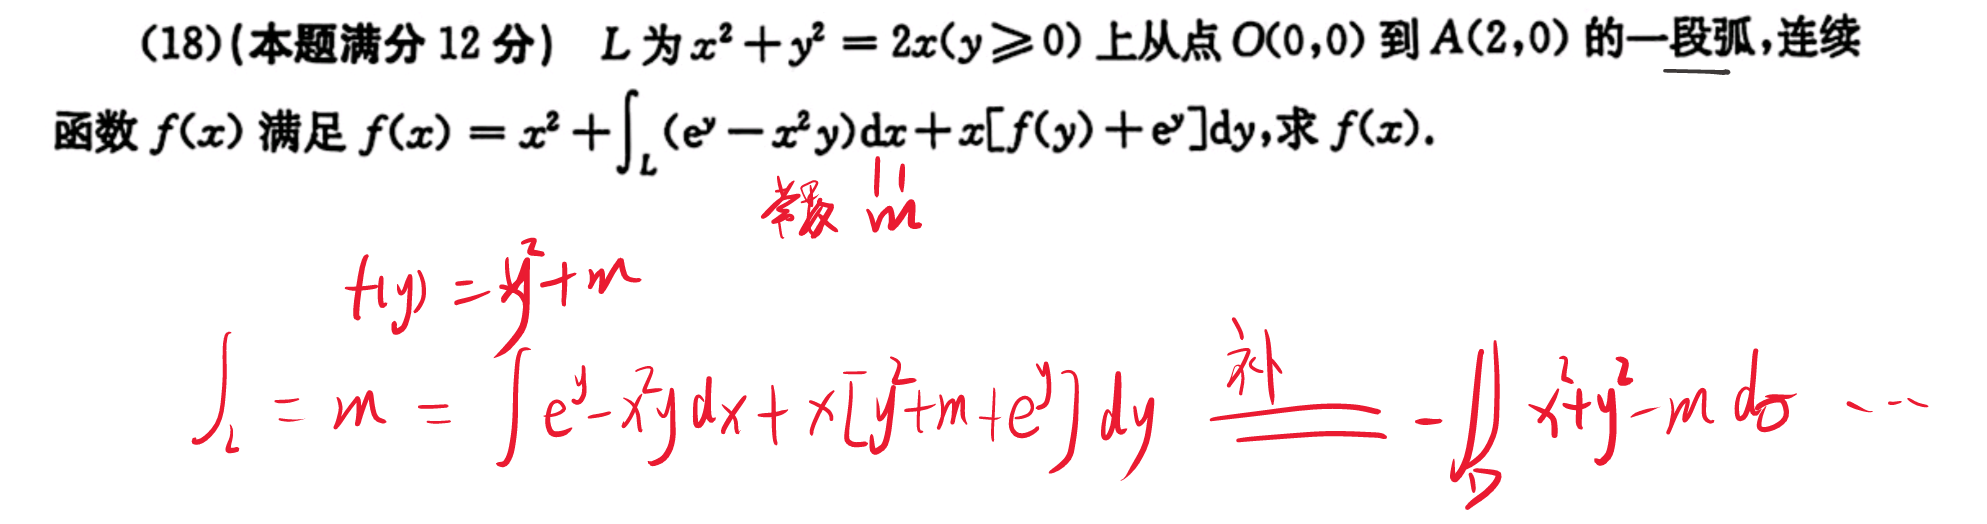 (18)(本题满分 12 分) L 为 x² + y² = 2x(y ⩾ 0) 上从点 O(0,0) 到 A(2,0) 的一段弧,连续
函数 f(x) 满足 f(x) = x² + ∫_L (e^y − x²y)dx + x[f(y) + e^y]dy,求 f(x).
常数 m
f(y) = y² + m
∫_L = m = ∫ e^y − x²y dx + x[y² + m + e^y] dy 补 = − ∬_D x² + y² − m dσ ...